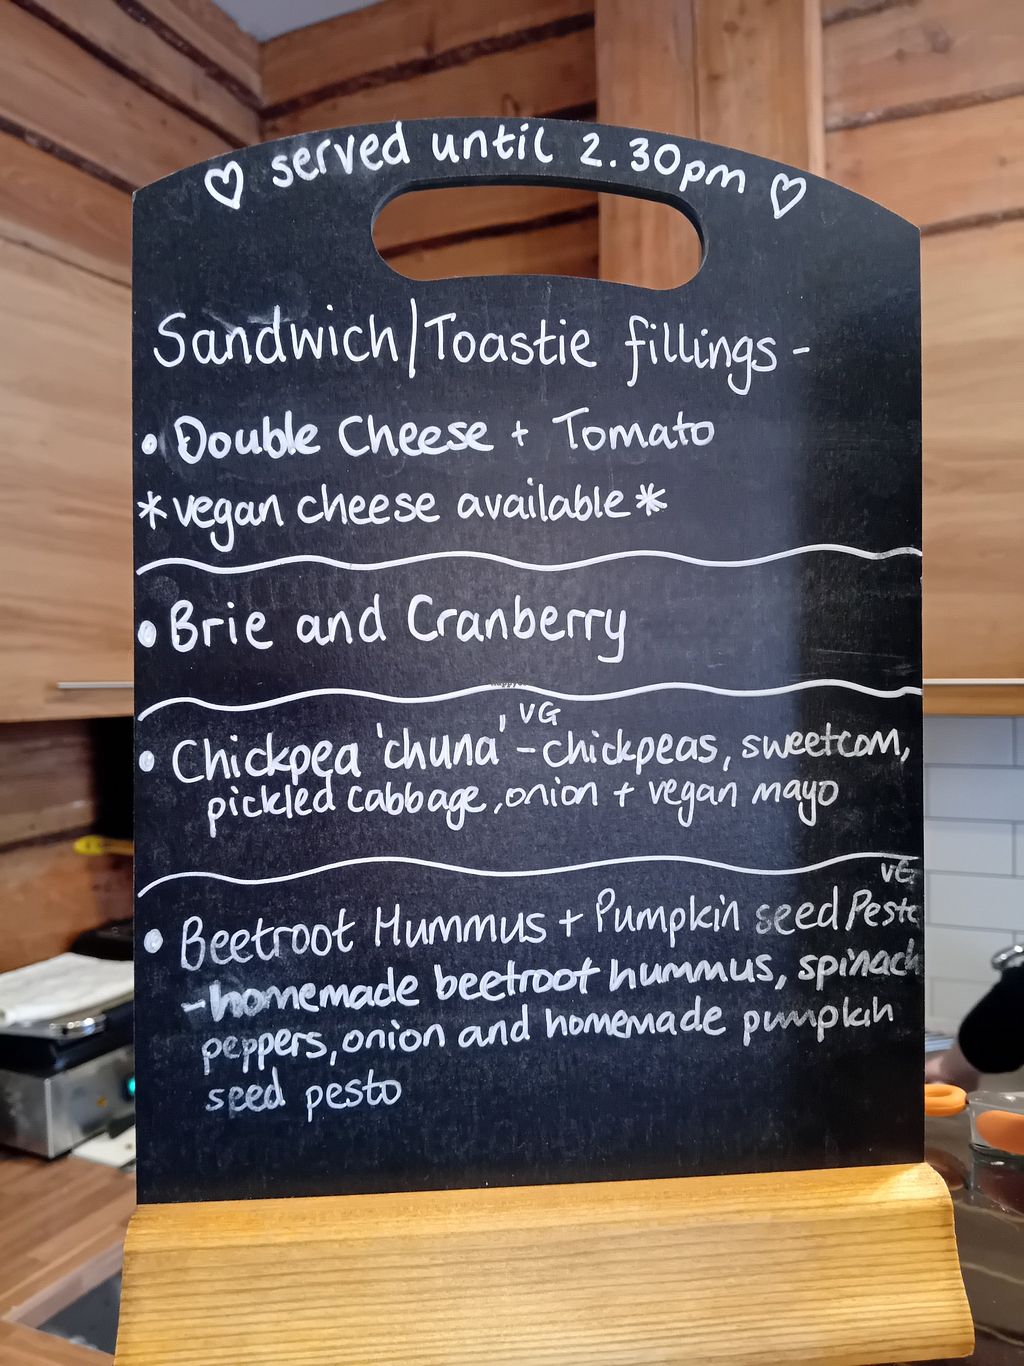 ♡ served until 2.30pm ♡
Sandwich/Toastie fillings -
• Double Cheese + Tomato
*vegan cheese available*
• Brie and Cranberry
VG
• Chickpea 'chuna' - chickpeas, sweetcorn,
pickled cabbage, onion + vegan mayo
VG
• Beetroot Hummus + Pumpkin seed Pesto
- homemade beetroot hummus, spinach
peppers, onion and homemade pumpkin
seed pesto